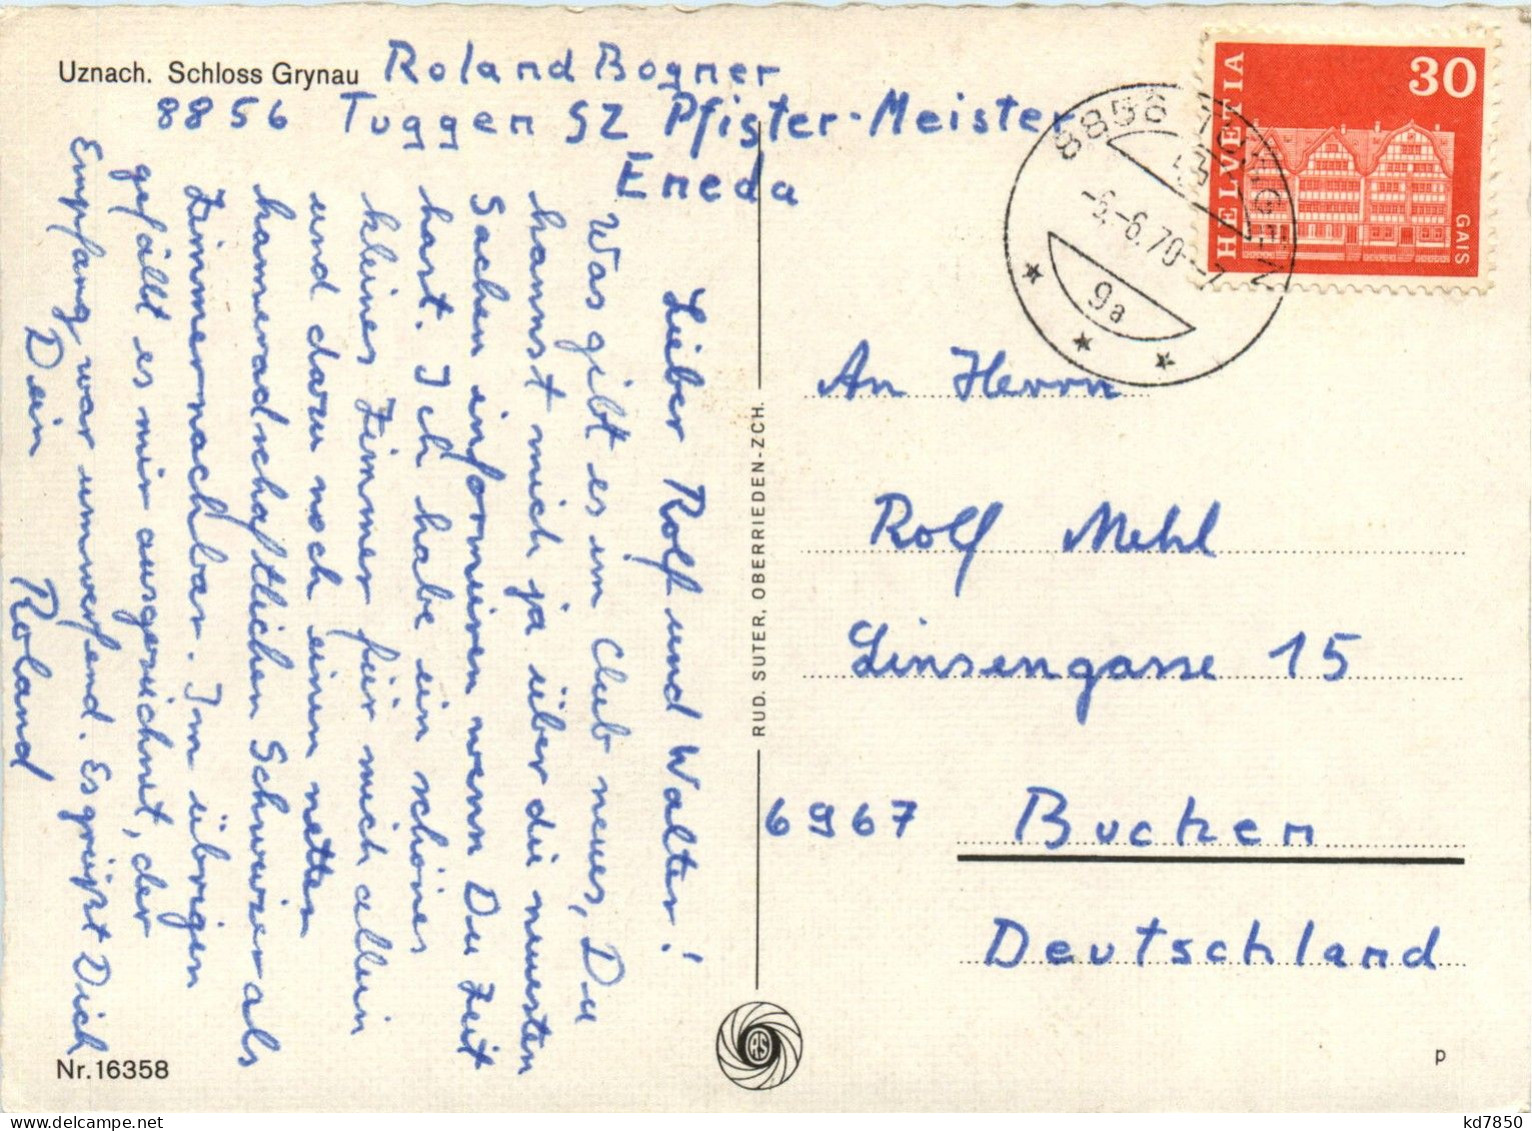 Uznach. Schloss Grynau
Roland Bogner
8856 Tuggen SZ Pfister-Meister
Eneda
Lieber Rolf und Walter!
Was gibt es im Club neues, Du
kannst mich ja über die neuesten
Sachen informieren wenn Du Zeit
hast. Ich habe ein schönes
kleines Zimmer für mich allein
und dazu noch einen netten
kameradschaftlichen Schweizer als
Zimmernachbar. Im übrigen
gefällt es mir ausgezeichnet, der
Empfang war umwerfend. Es grüßt Dich
Dein Roland
Nr. 16358
RUD. SUTER, OBERRIEDEN-ZCH.
RS
HELVETIA
30
GAIS
8856 TUGGEN
-6.-6.70--7
9a
An Herrn
Rolf Mehl
Linsengasse 15
6967 Buchen
Deutschland
p
kd7850